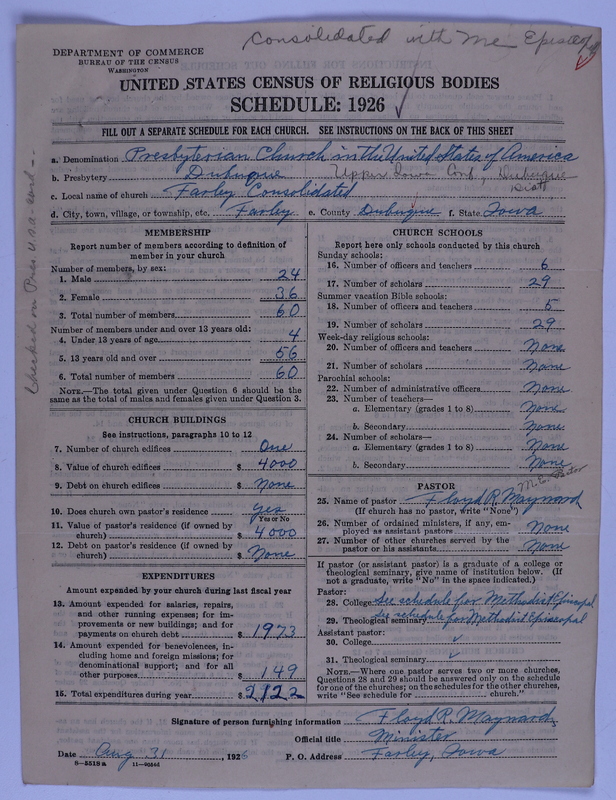 Consolidated with Me Episcopal
DEPARTMENT OF COMMERCE
BUREAU OF THE CENSUS
WASHINGTON
UNITED STATES CENSUS OF RELIGIOUS BODIES
SCHEDULE: 1926
FILL OUT A SEPARATE SCHEDULE FOR EACH CHURCH. SEE INSTRUCTIONS ON THE BACK OF THIS SHEET
a. Denomination Presbyterian Church in the United States of America
b. Presbytery Dubuque Upper Iowa Conf, Dubuque
Dist
c. Local name of church Farley Consolidated
d. City, town, village, or township, etc. Farley e. County Dubuque f. State Iowa
MEMBERSHIP
Report number of members according to definition of
member in your church
Number of members, by sex:
1. Male 24
2. Female 36
3. Total number of members 60
Number of members under and over 13 years old:
4. Under 13 years of age 4
5. 13 years old and over 56
6. Total number of members 60
NOTE.—The total given under Question 6 should be the
same as the total of males and females given under Question 3.
CHURCH BUILDINGS
See instructions, paragraphs 10 to 12
7. Number of church edifices One
8. Value of church edifices $ 4000
9. Debt on church edifices $ None
10. Does church own pastor's residence yes
Yes or No
11. Value of pastor's residence (if owned by
church) $ 4000
12. Debt on pastor's residence (if owned by
church) $ None
EXPENDITURES
Amount expended by your church during last fiscal year
13. Amount expended for salaries, repairs,
and other running expenses; for im-
provements or new buildings; and for
payments on church debt $ 1973
14. Amount expended for benevolences, in-
cluding home and foreign missions; for
denominational support; and for all
other purposes $ 149
15. Total expenditures during year $ 2122
CHURCH SCHOOLS
Report here only schools conducted by this church
Sunday schools:
16. Number of officers and teachers 6
17. Number of scholars 29
Summer vacation Bible schools:
18. Number of officers and teachers 5
19. Number of scholars 29
Week-day religious schools:
20. Number of officers and teachers None
21. Number of scholars None
Parochial schools:
22. Number of administrative officers None
23. Number of teachers—
a. Elementary (grades 1 to 8) None
b. Secondary None
24. Number of scholars—
a. Elementary (grades 1 to 8) None
b. Secondary None
PASTOR
M.E. Pastor
25. Name of pastor Floyd R. Maynard
(If church has no pastor, write "None")
26. Number of ordained ministers, if any, em-
ployed as assistant pastors None
27. Number of other churches served by the
pastor or his assistants None
If pastor (or assistant pastor) is a graduate of a college or
theological seminary, give name of institution below. (If
not a graduate, write "No" in the space indicated.)
Pastor:
28. College See schedule for Methodist Episcopal
29. Theological seminary See schedule for Methodist Episcopal
Assistant pastor:
30. College
31. Theological seminary
NOTE.—Where one pastor serves two or more churches,
Questions 28 and 29 should be answered only on the schedule
for one of the churches; on the schedules for the other churches,
write "See schedule for church."
Signature of person furnishing information Floyd R. Maynard
Official title Minister
Date Aug 31, 1926 P. O. Address Farley, Iowa
8—5518a 11—9056d